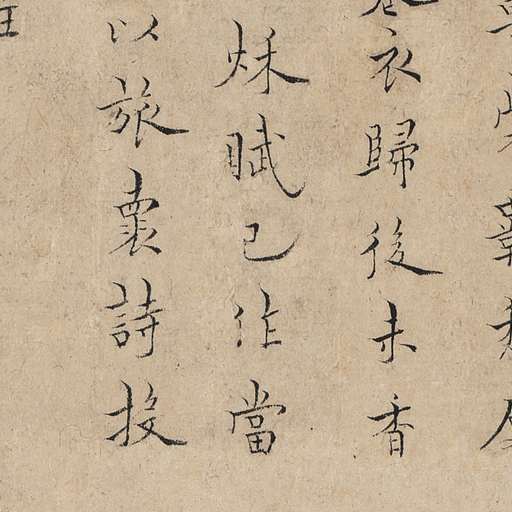 衣歸後未香
秌賦已作當
以旅囊詩投